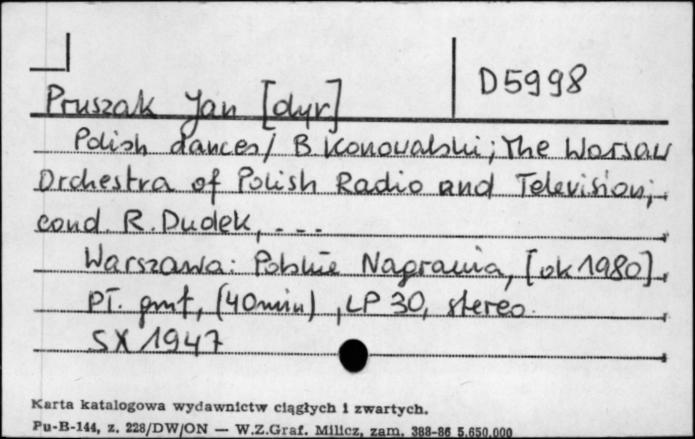 D5998
Pruszak Jan [dyr]
Polish dances / B. Konowalski; The Warsaw
Orchestra of Polish Radio and Television;
cond. R. Dudek, ...
Warszawa: Polskie Nagrania, [ok 1980]
Pł. gmf, (40min), LP 30, stereo.
SX 1947
Karta katalogowa wydawnictw ciągłych i zwartych.
Pu-B-144, z. 228/DW/ON — W.Z.Graf. Milicz, zam. 388-86 5.650.000